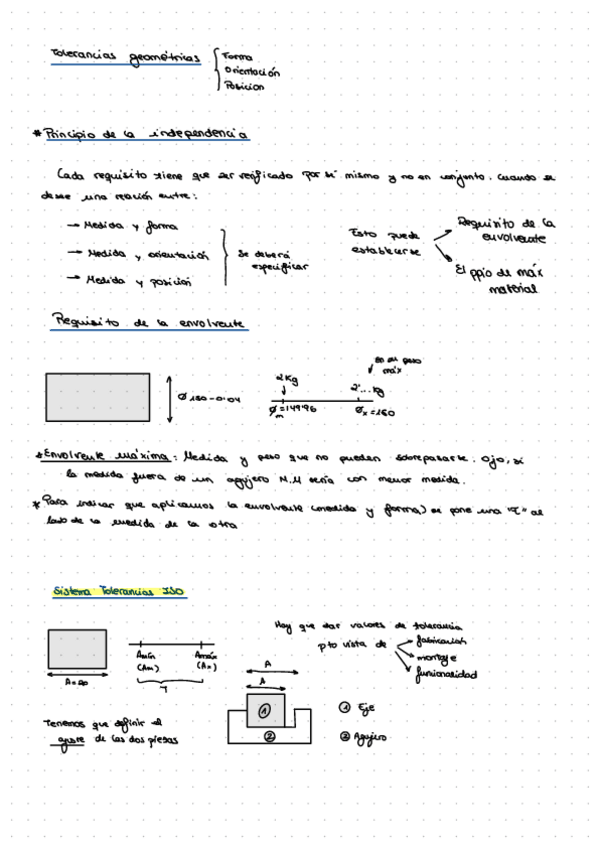 Tolerancias geométricas
Forma
Orientación
Posicion
* Principio de la independencia
Cada requisito tiene que ser verificado por sí mismo y no en conjunto. Cuando se
desee una relación entre:
→ Medida y forma
→ Medida y orientación
→ Medida y posición
Se deberá
especificar
Esto puede
establecerse
Requisito de la
envolvente
El ppio de máx
material
Requisito de la envolvente
Ø 150 - 0.04
2Kg
Øm = 149'96
en su peso
máx
2'... kg
Øx = 150
* Envolvente máxima: Medida y peso que no pueden sobrepasarse. Ojo, si
la medida fuera de un agujero M.M sería con menor medida.
* Para indicar que aplicamos la envolvente (medida y forma) se pone una "E" al
lado de la medida de la otra
Sistema Tolerancias ISO
Hay que dar valores de tolerancia
pto vista de
fabricación
montaje
funcionalidad
Amín
(Am)
Amáx
(Ax)
T
A
A
1
2
① Eje
② Agujero
Tenemos que definir el
ajuste de las dos piezas